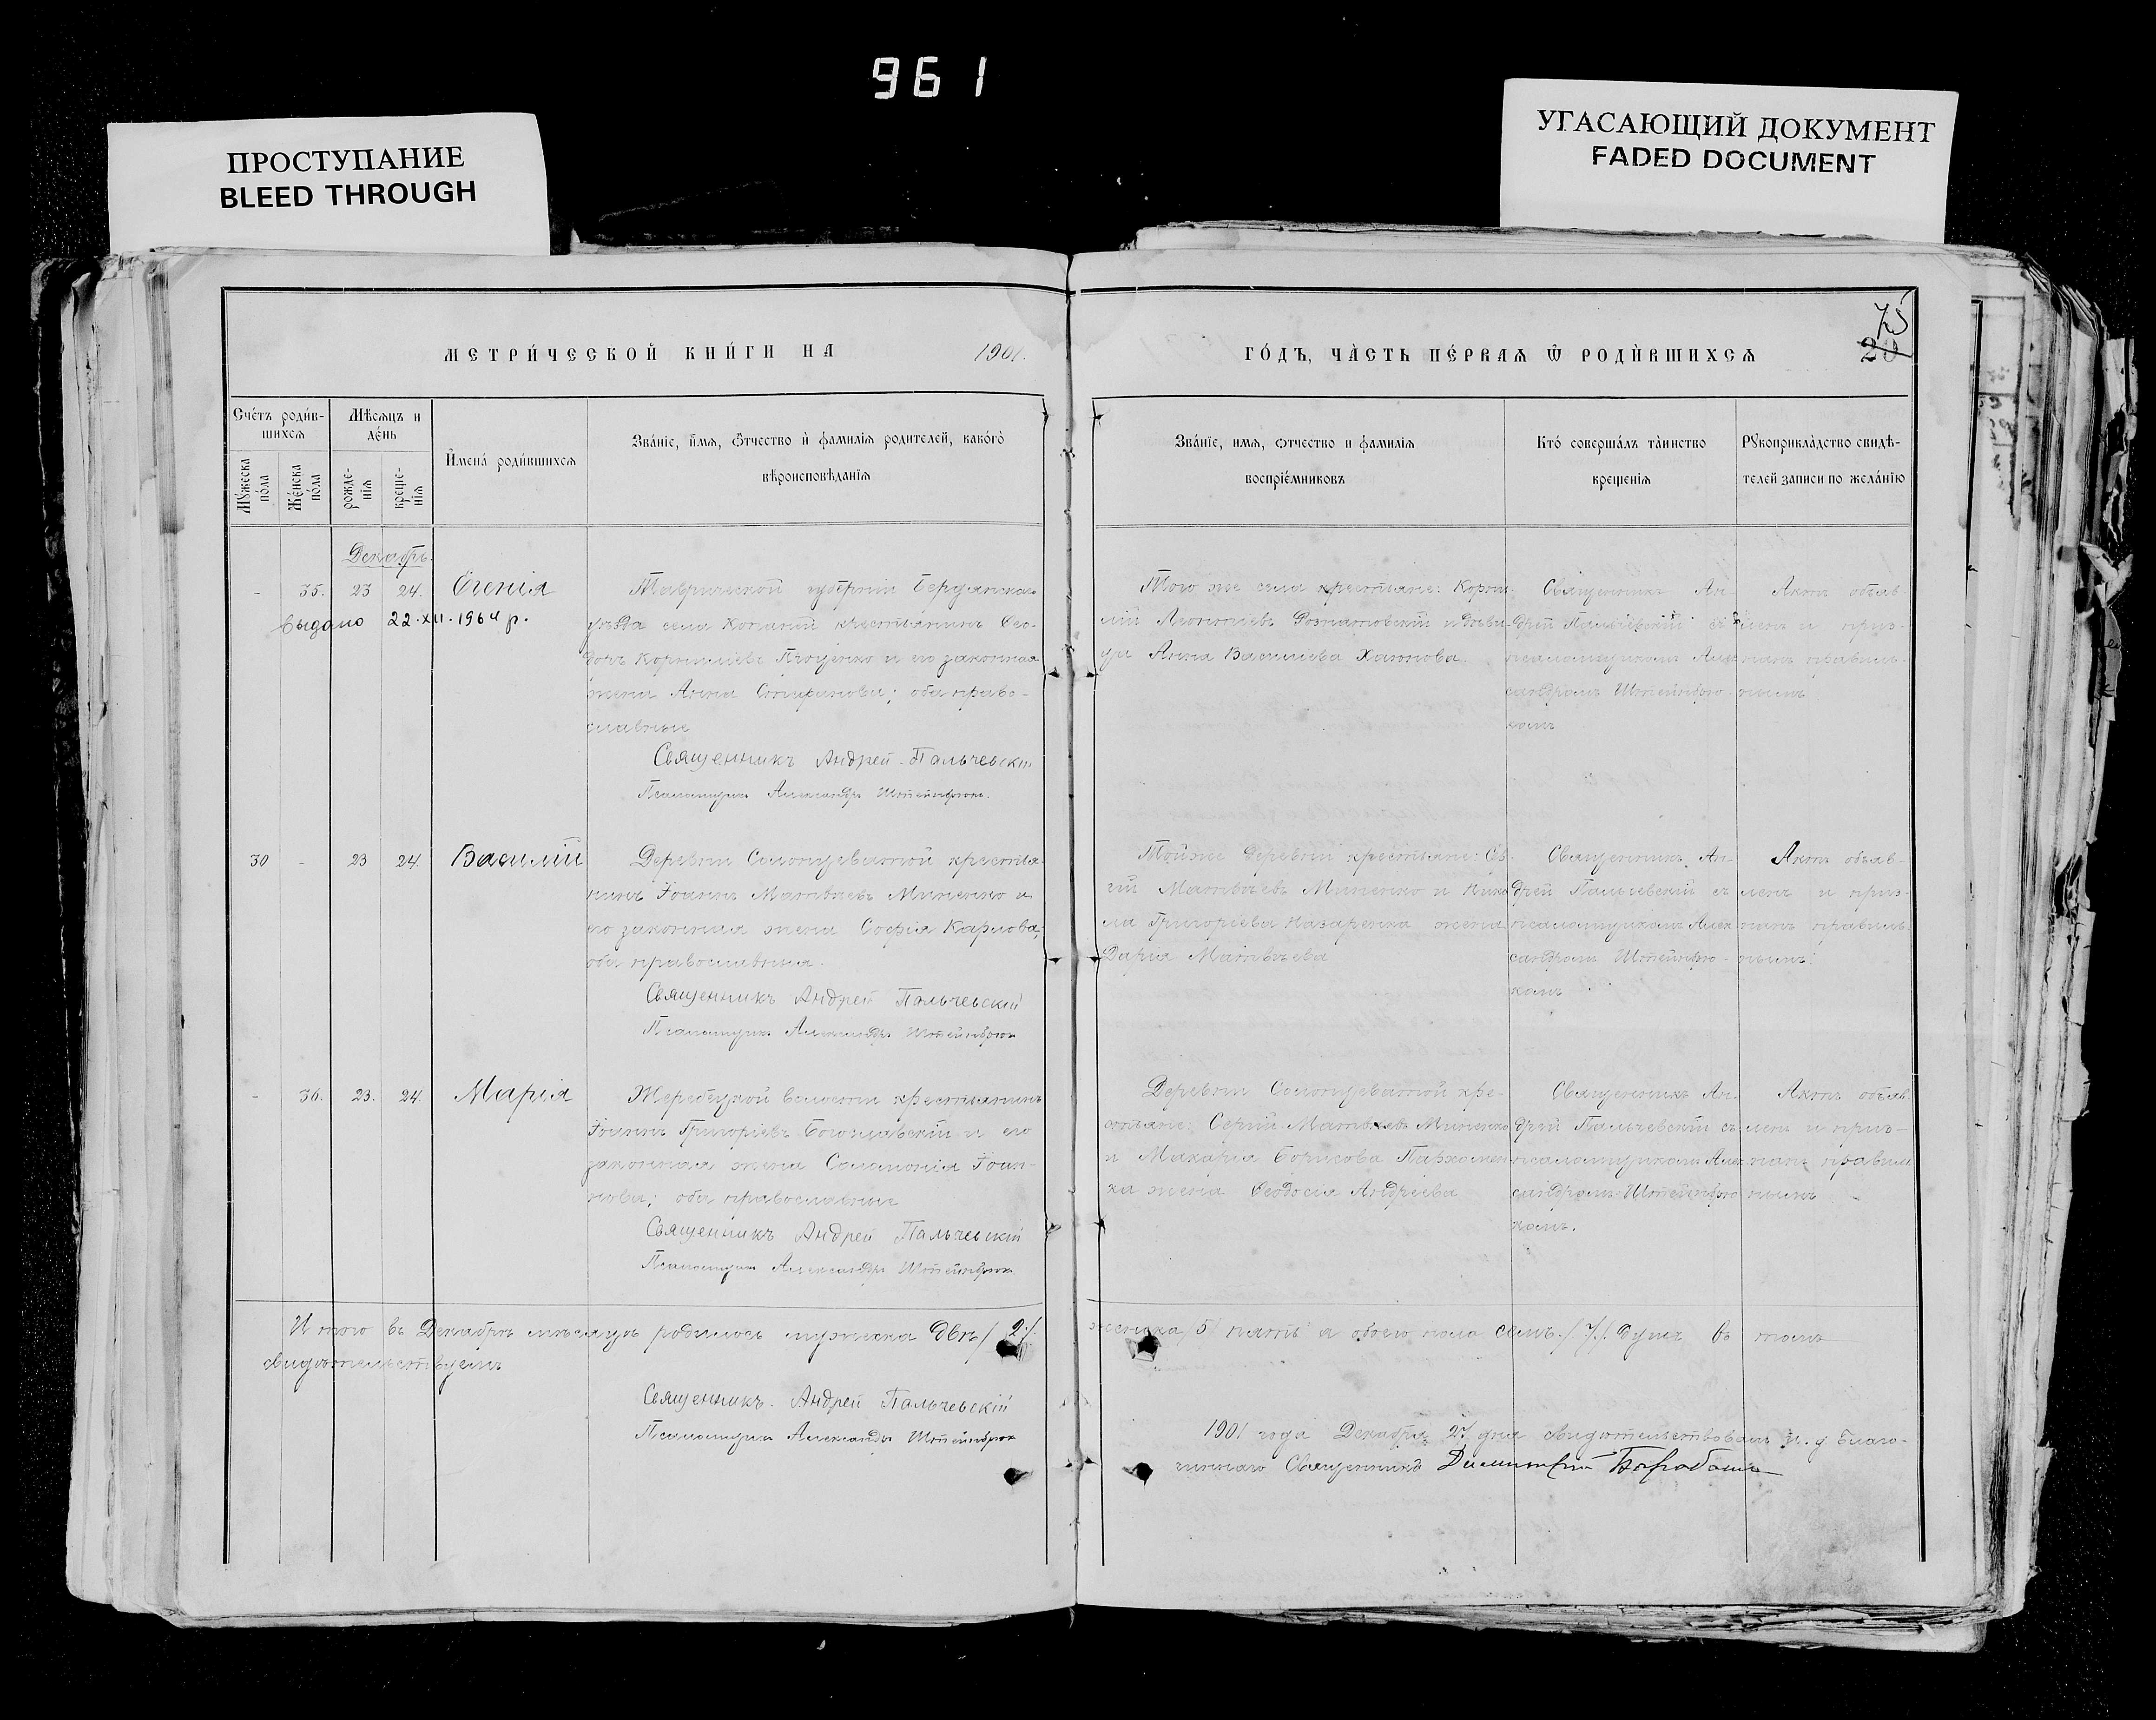 961
ПРОСТУПАНИЕ
BLEED THROUGH
УГАСАЮЩИЙ ДОКУМЕНТ
FADED DOCUMENT
75
20
МЕТРИ́ЧЕСКОЙ КНИ́ГИ НА 1901.
ГО́ДЪ, ЧА̀СТЬ ПЕ́РВАѦ Ѿ РОДЍВШИХСѦ
Сче́тъ роди́в-
шихсѧ
Мѣсѧцъ и
де́нь
Мꙋ́жеска
по́ла
Же́нска
по́ла
рожде-
нїѧ
креще-
нїѧ
И҆мена̀ роди́вшихсѧ
Зва́нїе, и҆́мѧ, ѻ҆́тчество и҆ фамилїѧ родителей, како́гѡ
вѣроисповѣданїѧ
Зва́нїе, имѧ, ѻтчество и фамилїѧ
воспрїе́мниковъ
Кто́ соверша́лъ та̀инство
крещенїѧ
Рꙋкоприкла́дство свидѣ-
телей записи по жела́нїю
Декабрь.
- 35. 23 24. Евгенія
выдано 22.XII.1964 р.
Таврической губерніи Бердянскаго
уѣзда села Копаній крестьянинъ Ѳео-
доръ Корниліевъ Проценко и его законная
жена Анна Стефанова; оба право-
славные
Священникъ Андрей Пальчевскій
Псаломщикъ Александръ Штейнбрюкъ.
Того же села крестьяне: Корни-
лій Леонтіевъ и дѣви-
ца Анна Василіева
Священникъ Ан-
дрей Пальчевскій съ
псаломщикомъ Алек-
сандромъ Штейнбрю-
комъ
Актъ объяв-
ленъ и приз-
нанъ правиль-
нымъ
30 - 23 24. Василій
Деревни Солонцеватой крестья-
нинъ Іоаннъ Матвѣевъ Миненко и
его законная жена Софія Карпова;
оба православные.
Священникъ Андрей Пальчевскій
Псаломщикъ Александръ Штейнбрюкъ
Той же деревни крестьяне: Сер-
гій Матвѣевъ Миненко и Нико-
ла Григорьева Назаренка жена
Дарія Матвѣева
Священникъ Ан-
дрей Пальчевскій съ
псаломщикомъ Алек-
сандромъ Штейнбрю-
комъ
Актъ объяв-
ленъ и приз-
нанъ правиль-
нымъ.
- 36. 23. 24. Марія
Жеребецкой волости крестьянинъ
Іоаннъ Григоріевъ Богославскій и его
законная жена Соломонія Іоан-
нова; оба православные
Священникъ Андрей Пальчевскій
Псаломщикъ Александръ Штейнбрюкъ
Деревни Солонцеватой кре-
стьяне: Сергій Матвѣевъ Миненко
и Макарія Борисова Пархомен-
ка жена Ѳеодосія Андреева
Священникъ Ан-
дрей Пальчевскій съ
псаломщикомъ Алек-
сандромъ Штейнбрю-
комъ.
Актъ объяв-
ленъ и приз-
нанъ правиль-
нымъ
Итого въ Декабрѣ мѣсяцѣ родилось мужеска двѣ /2/. женска /5/ пять а обоего пола семь /7/. душъ въ томъ
свидѣтельствуемъ
Священникъ Андрей Пальчевскій
Псаломщикъ Александръ Штейнбрюкъ
1901 года Декабря дня свидѣтельствовалъ и. д. Благо-
чиннаго Священникъ Димитрій Барабашъ